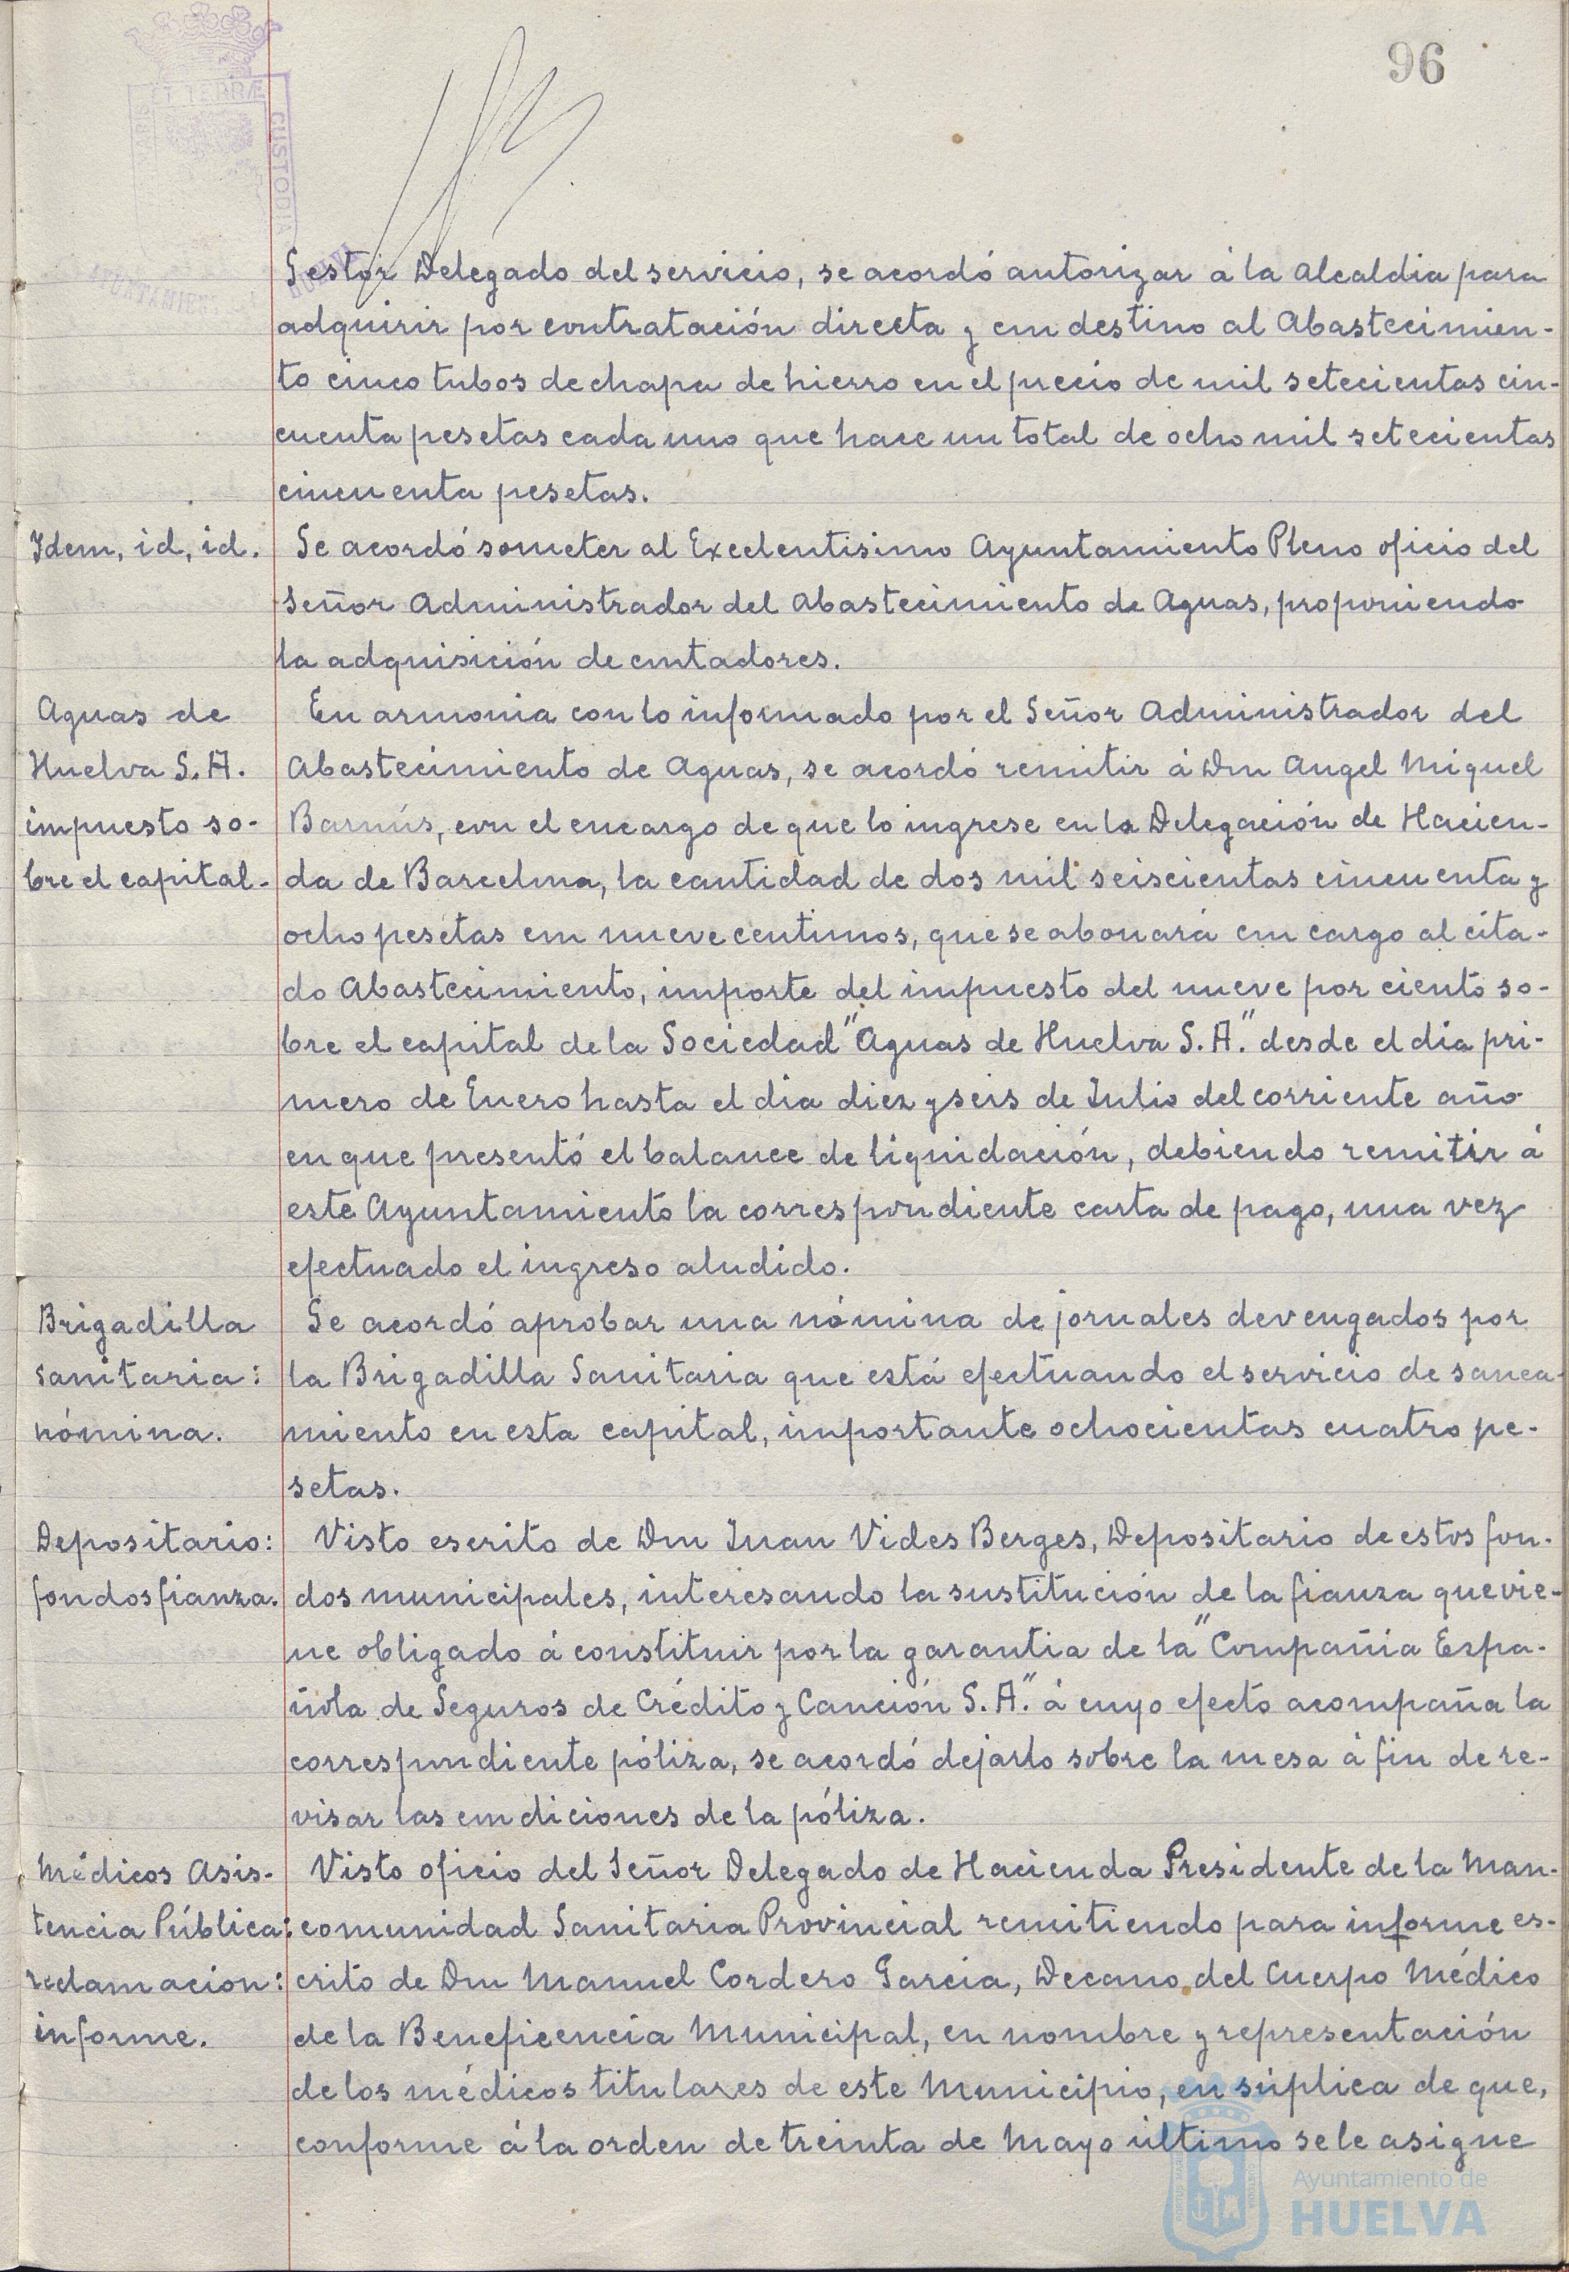 96
MARIS ET TERRÆ CUSTODIA
AYUNTAMIENTO HUELVA
Gestor Delegado del servicio, se acordó autorizar á la Alcaldia para
adquirir por contratación directa y con destino al Abastecimien-
to cinco tubos de chapa de hierro en el precio de mil setecientas cin-
cuenta pesetas cada uno que hace un total de ocho mil setecientas
cincuenta pesetas.
Idem, id, id.
Se acordó someter al Excelentisimo Ayuntamiento Pleno oficio del
Señor Administrador del Abastecimiento de Aguas, proponiendo
la adquisición de contadores.
Aguas de
Huelva S. A.
impuesto so-
bre el capital.
En armonia con lo informado por el Señor Administrador del
Abastecimiento de Aguas, se acordó remitir á Don Angel Miguel
Barnús, con el encargo de que lo ingrese en la Delegación de Hacien-
da de Barcelona, la cantidad de dos mil seiscientas cincuenta y
ocho pesetas con nueve centimos, que se abonará con cargo al cita-
do Abastecimiento, importe del impuesto del nueve por ciento so-
bre el capital de la Sociedad "Aguas de Huelva S. A." desde el dia pri-
mero de Enero hasta el dia diez y seis de Julio del corriente año
en que presentó el balance de liquidación, debiendo remitir á
este Ayuntamiento la correspondiente carta de pago, una vez
efectuado el ingreso aludido.
Brigadilla
sanitaria:
nómina.
Se acordó aprobar una nómina de jornales devengados por
la Brigadilla Sanitaria que está efectuando el servicio de sanea-
miento en esta capital, importante ochocientas cuatro pe-
setas.
Depositario:
fondos fianza.
Visto escrito de Don Juan Vides Berges, Depositario de estos fon-
dos municipales, interesando la sustitución de la fianza que vie-
ne obligado á constituir por la garantia de la "Compañia Espa-
ñola de Seguros de Crédito y Caución S. A." á cuyo efecto acompaña la
correspondiente póliza, se acordó dejarlo sobre la mesa á fin de re-
visar las condiciones de la póliza.
Médicos Asis-
tencia Pública:
reclamacion:
informe.
Visto oficio del Señor Delegado de Hacienda Presidente de la Man-
comunidad Sanitaria Provincial remitiendo para informe es-
crito de Don Manuel Cordero Garcia, Decano del Cuerpo Médico
de la Beneficencia Municipal, en nombre y representación
de los médicos titulares de este Municipio, en súplica de que,
conforme á la orden de treinta de Mayo último se le asigne
Ayuntamiento de
HUELVA